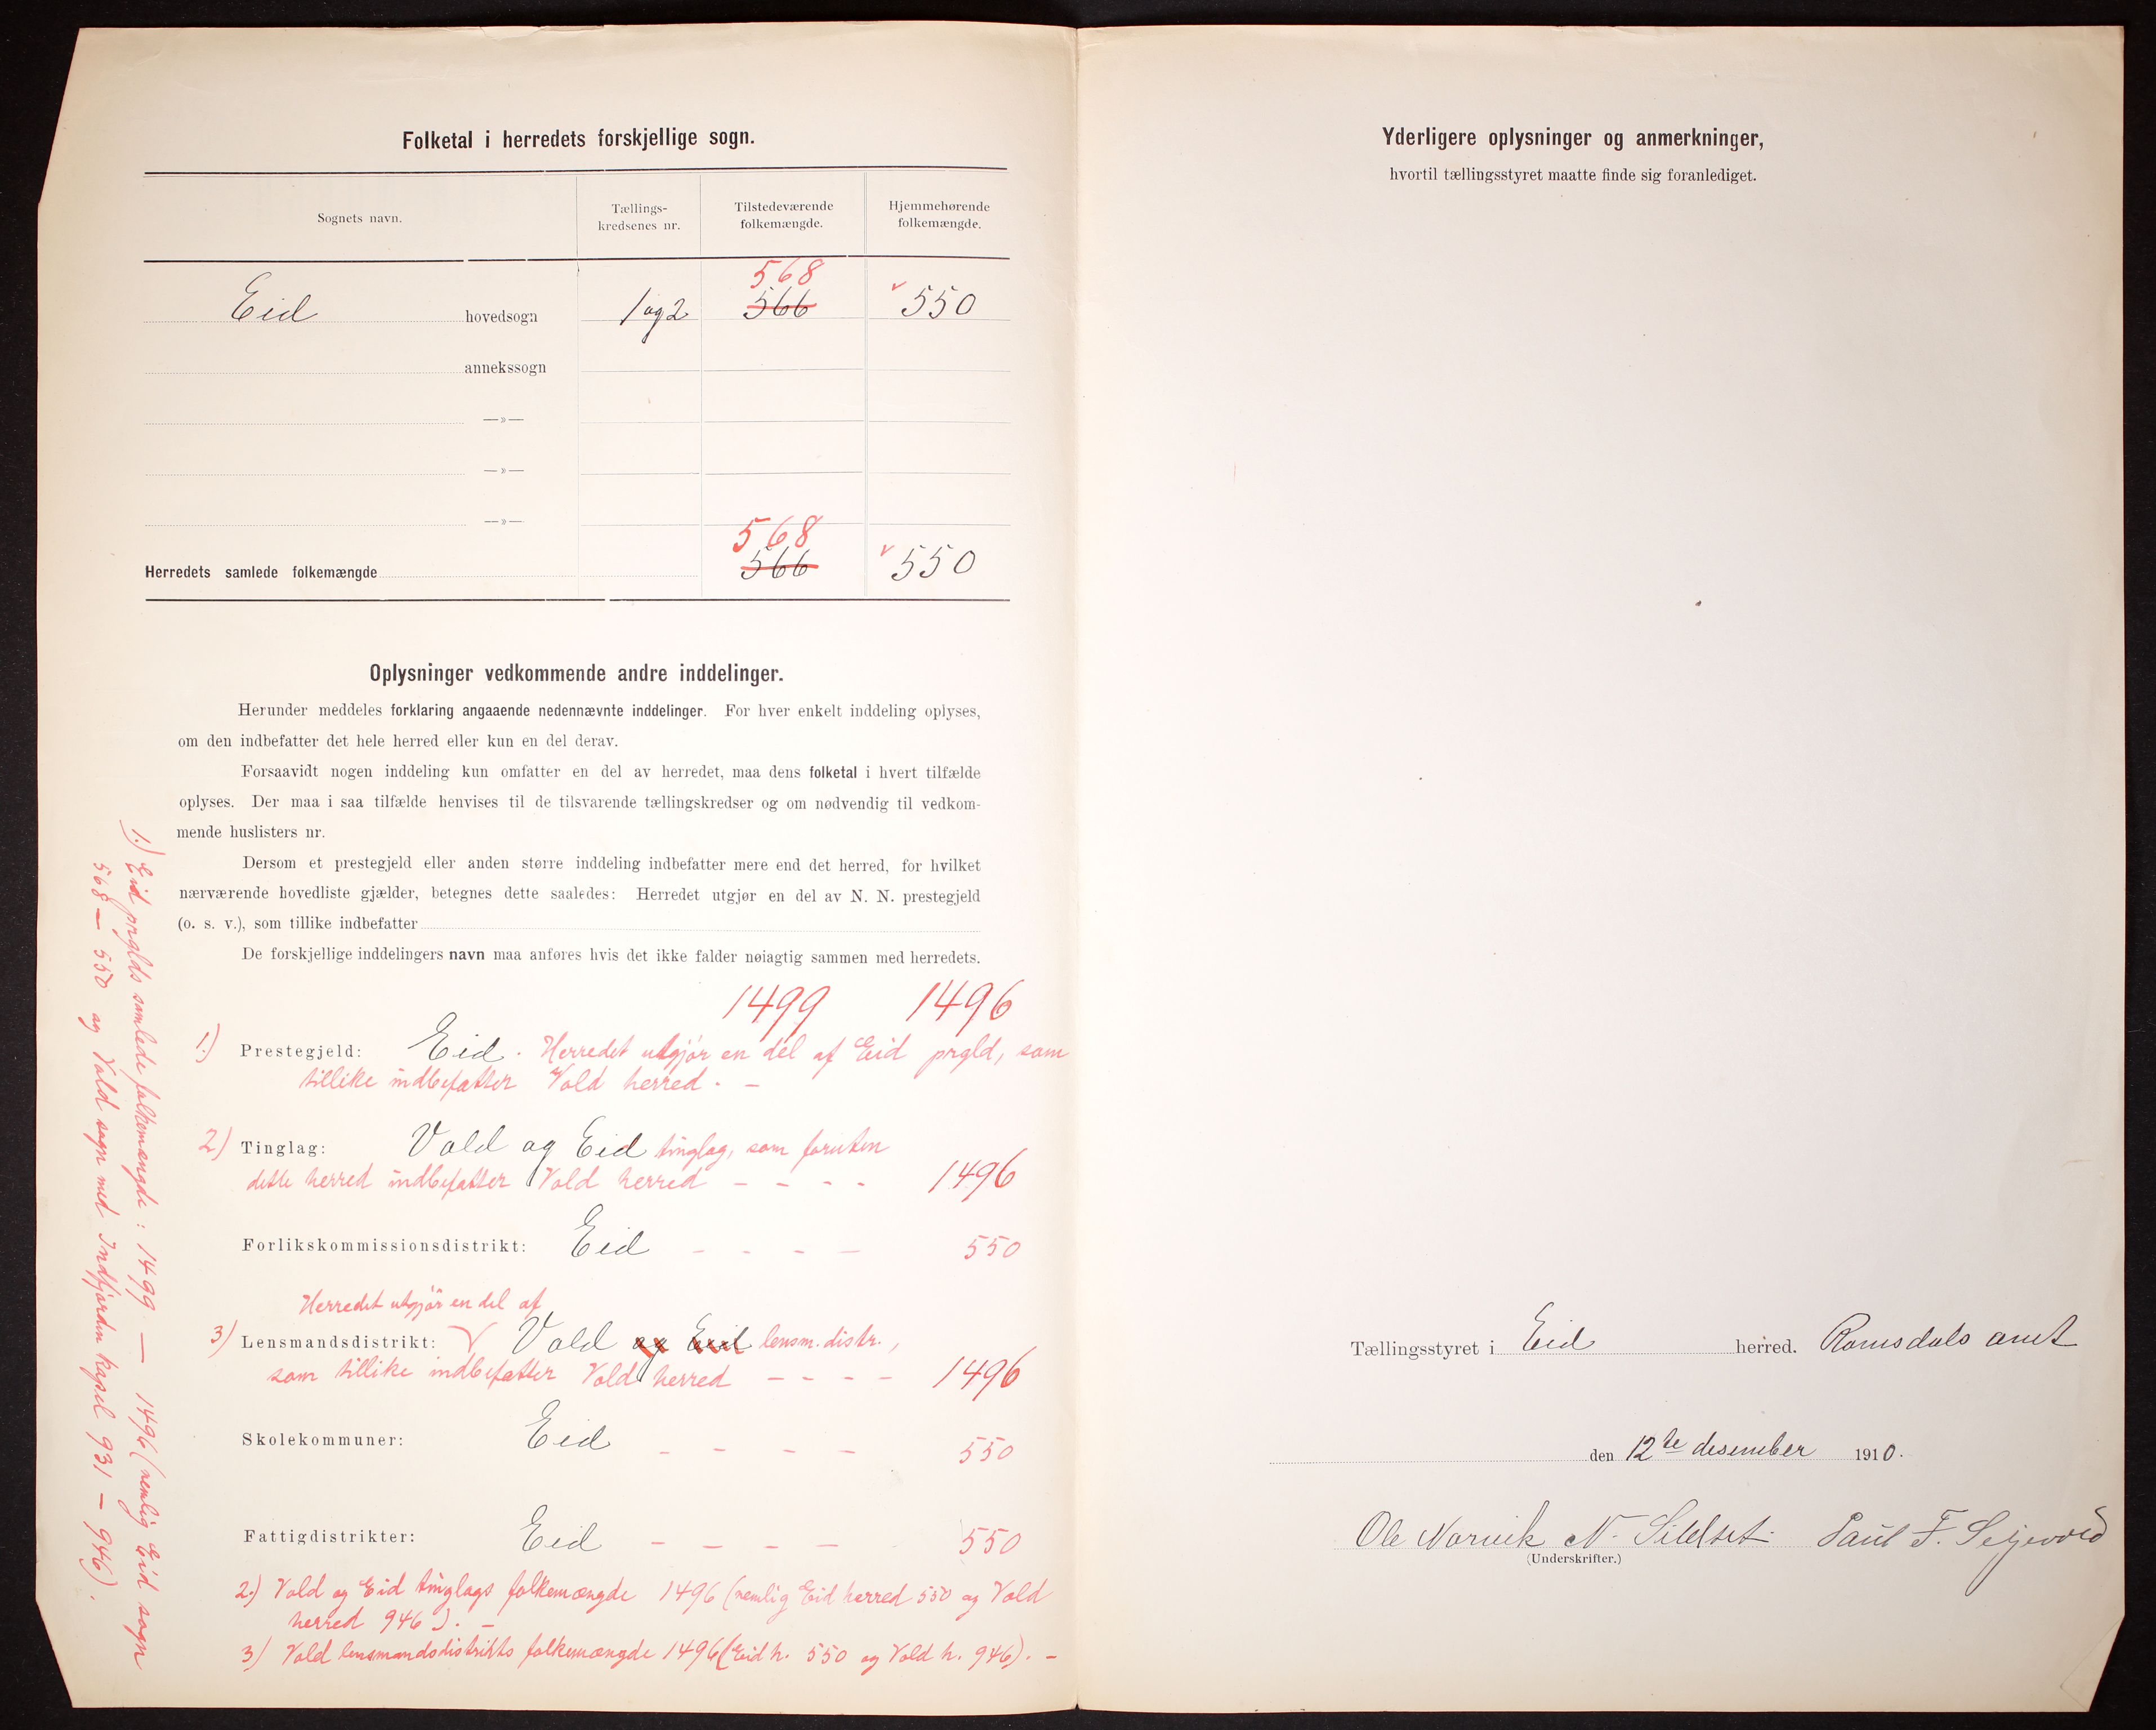 Folketal i herredets forskjellige sogn.
Sognets navn.
Tællings-
kredsenes nr.
Tilstedeværende
folkemængde.
Hjemmehørende
folkemængde.
568
Eid hovedsogn 1 og 2 566 550
annekssogn
—»—
—»—
—»—
568
Herredets samlede folkemængde 566 550
Oplysninger vedkommende andre inddelinger.
Herunder meddeles forklaring angaaende nedennævnte inddelinger. For hver enkelt inddeling oplyses,
om den indbefatter det hele herred eller kun en del derav.
Forsaavidt nogen inddeling kun omfatter en del av herredet, maa dens folketal i hvert tilfælde
oplyses. Der maa i saa tilfælde henvises til de tilsvarende tællingskredser og om nødvendig til vedkom-
mende huslisters nr.
Dersom et prestegjeld eller anden større inddeling indbefatter mere end det herred, for hvilket
nærværende hovedliste gjælder, betegnes dette saaledes: Herredet utgjør en del av N. N. prestegjeld
(o. s. v.), som tillike indbefatter
De forskjellige inddelingers navn maa anføres hvis det ikke falder nøiagtig sammen med herredets.
1499 1496
1.) Prestegjeld: Eid. Herredet utgjør en del af Eid prgld, som
tillike indbefatter Vold herred. —
2) Tinglag: Vold og Eid tinglag, som foruten
dette herred indbefatter Vold herred - - - - 1496
Forlikskommissionsdistrikt: Eid - - - - 550
Herredet utgjør en del af
3) Lensmandsdistrikt: Vold og Eid lensm. distr.,
som tillike indbefatter Vold herred - - - - 1496
Skolekommuner: Eid - - - - 550
Fattigdistrikter: Eid - - - - - 550
2.) Vold og Eid tinglags folkemængde 1496 (nemlig Eid herred 550 og Vold
herred 946). —
3) Vold lensmandsdistrikts folkemængde 1496 (Eid h. 550 og Vold h. 946). —
1.) Eid prgjelds samlede folkemængde: 1499 — 1496 (nemlig Eid sogn
568 — 550 og Vold sogn med Indfjorden kapel 931 — 946).
Yderligere oplysninger og anmerkninger,
hvortil tællingsstyret maatte finde sig foranlediget.
Tællingsstyret i Eid herred. Romsdals amt
den 12te desember 1910.
Ole Norvik N. Sildset Paul F. Seljevold
(Underskrifter.)